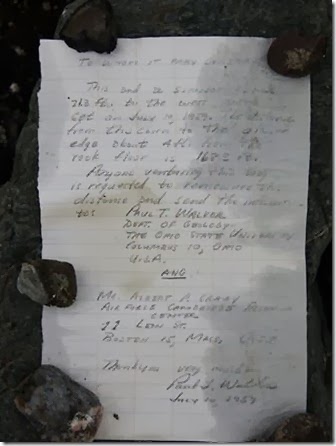 To whom it may concern:
This and a similar cairn
21.3 ft. to the west were
set on July 10, 1959. The distance
from this cairn to the glacier
edge about 4 ft. from the
rock floor is 168.3 ft.
Anyone venturing this way
is requested to remeasure this
distance and send the
to: Paul T. Walker
Dept. of Geology
The Ohio State University
Columbus 10, Ohio
U.S.A.
AND
Mr. Albert P. Crary
Air Force Cambridge Research
Center
11 Leon St.
Boston 15, Mass. U.S.A.
Thank you very much.
Paul T. Walker
July 10, 1959